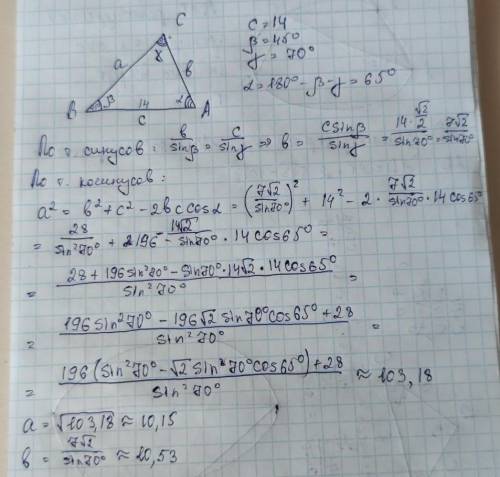 C
c = 14
β = 45°
γ = 70°
α = 180° - β - γ = 65°
a γ b
B β 14 α A
c
По т. синусов : b/sinβ = c/sinγ ⇒ b = c sinβ/sinγ = (14·√2/2)/sin70° = 7√2/sin70°
По т. косинусов :
a² = b² + c² - 2bc cosα = (7√2/sin70°)² + 14² - 2 · 7√2/sin70° · 14 cos65°
= 28/sin²70° + 196 - 14√2/sin70° · 14 cos65° =
= (28 + 196 sin²70° - sin70° · 14√2 · 14 cos65°)/sin²70° =
= (196 sin²70° - 196√2 sin70° cos65° + 28)/sin²70° =
= (196 (sin²70° - √2 sin70° cos65°) + 28)/sin²70° ≈ 103,18
a = √103,18 ≈ 10,15
b = 7√2/sin70° ≈ 10,53